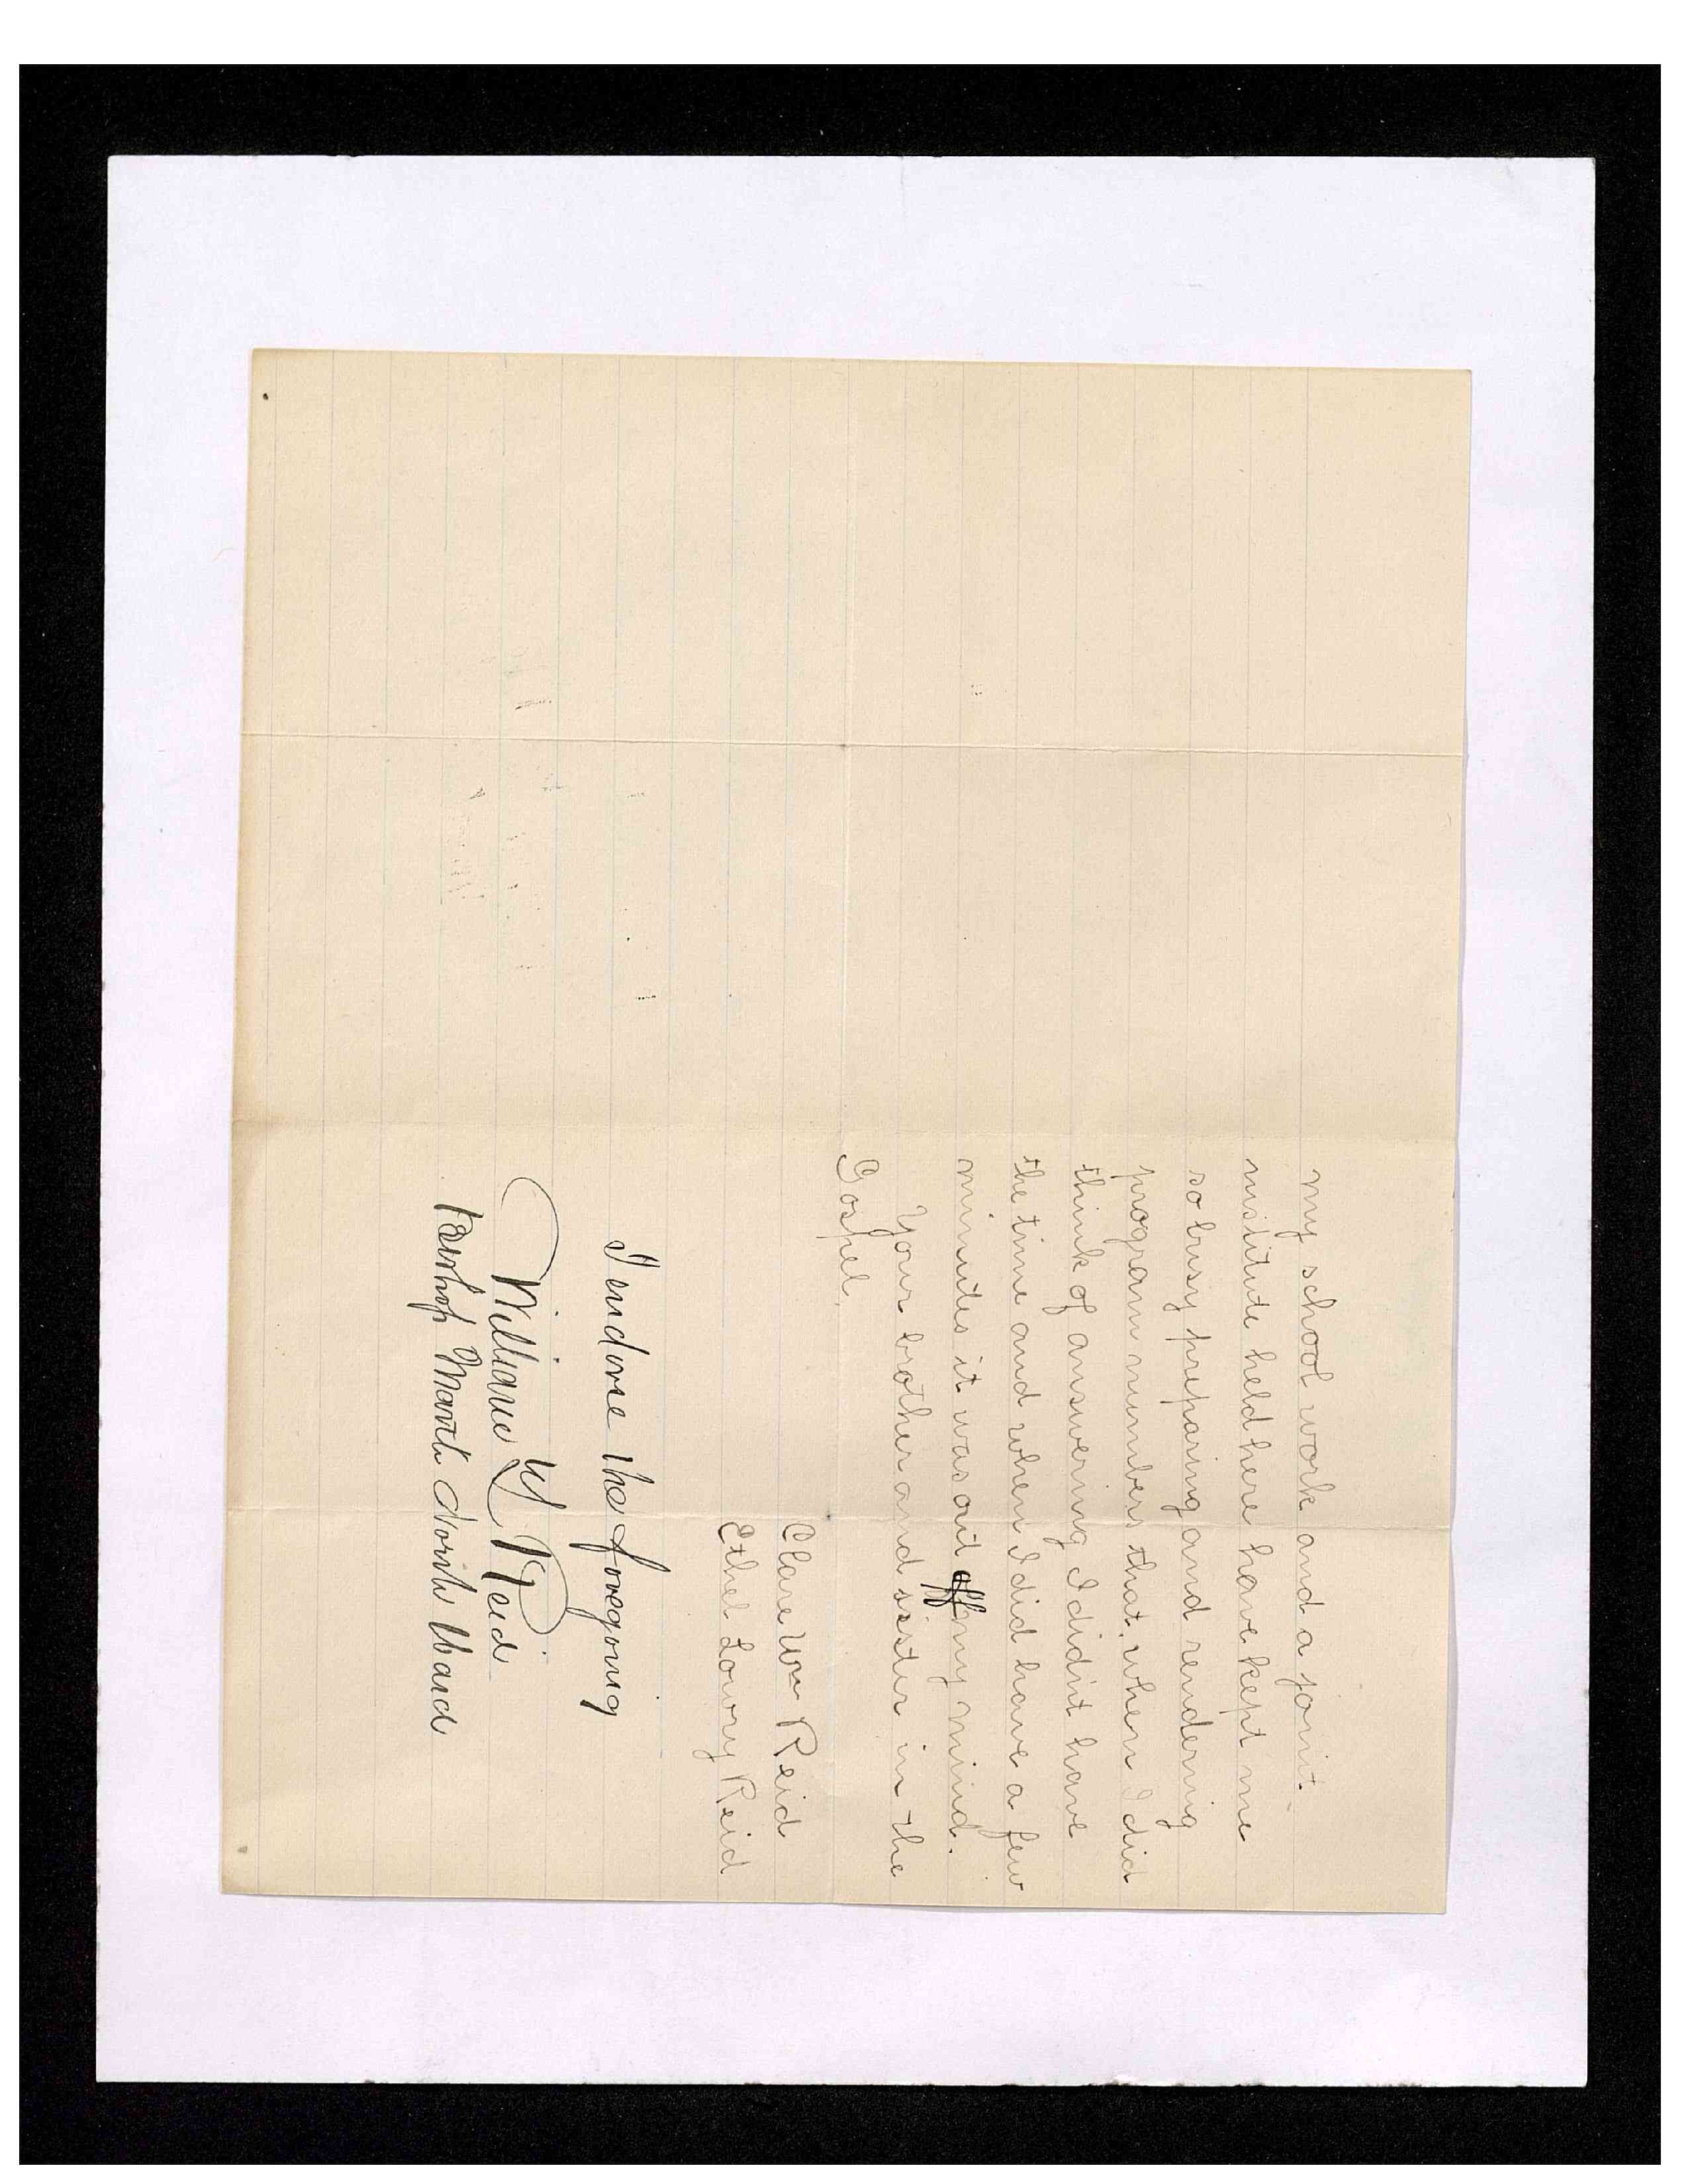 my school work and a joint-
institute held here have kept me
so busy preparing and rendering
program numbers that, when I did
think of answering I didn't have
the time and when I did have a few
minutes it was out off my mind.
Your brother and sister in the
Gospel.
Clare Wm Reid
Ethel Lowry Reid
I endorse the foregoing
William W Reid
Bishop Manti North Ward